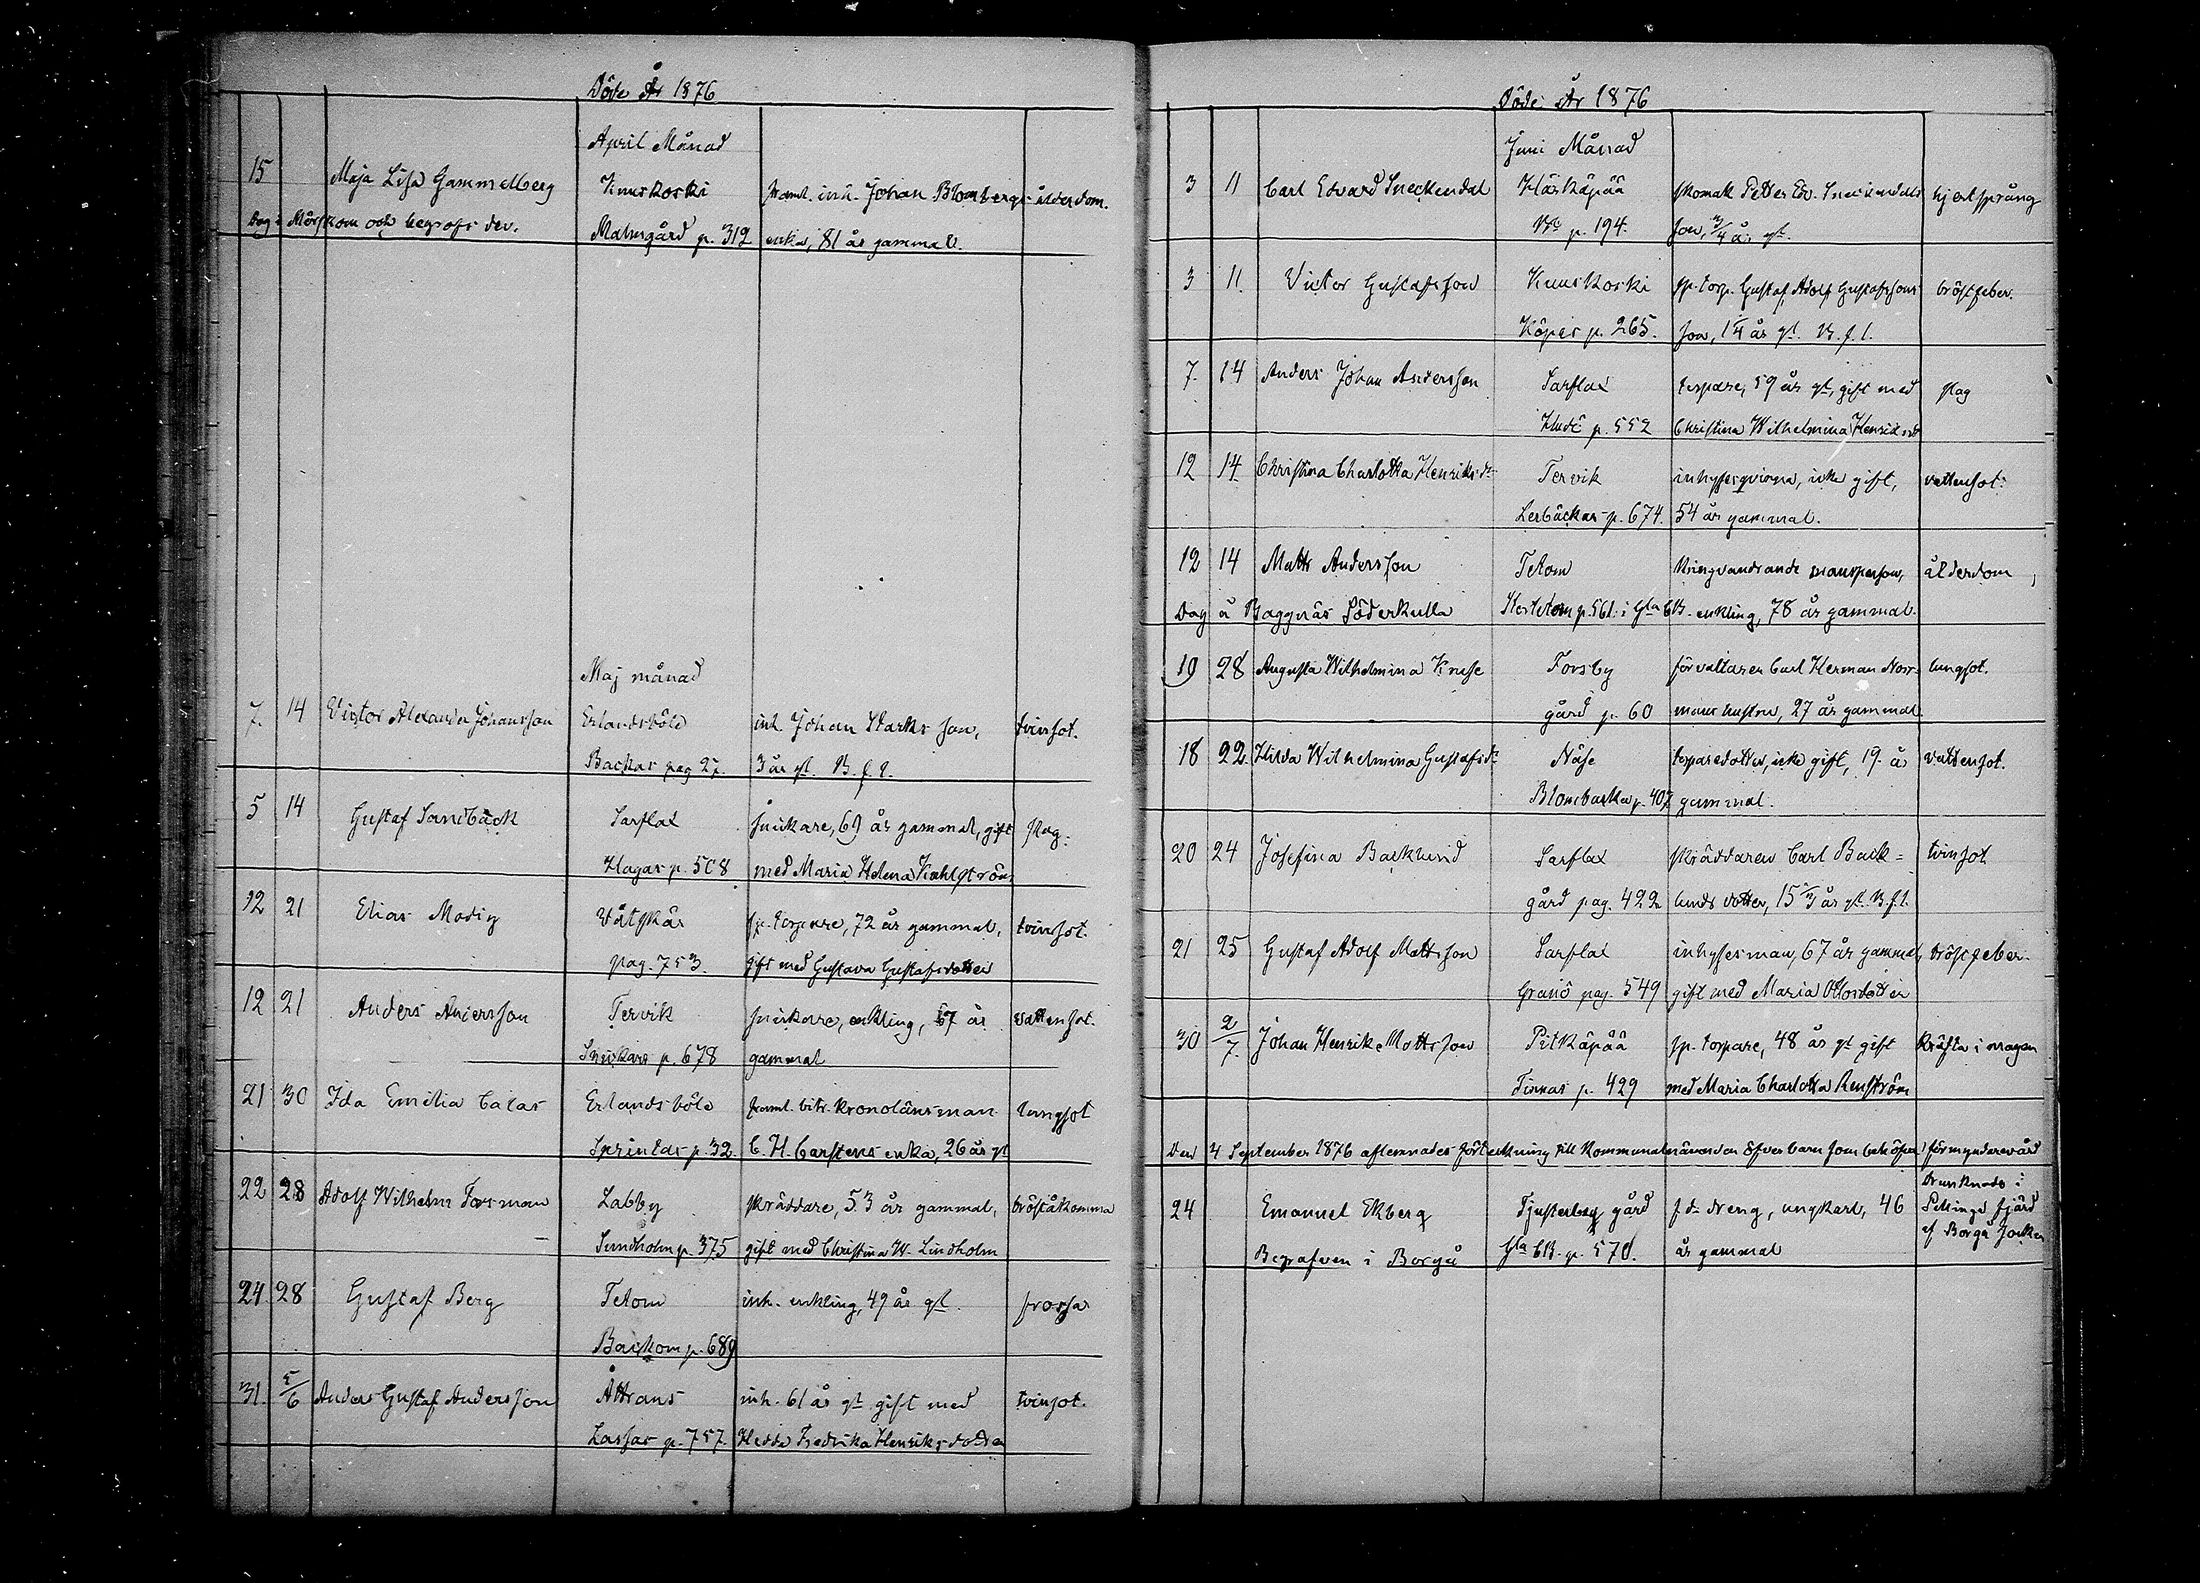 Döde År 1876
April Månad
15 Maja Lisa Gammelberg Kuuskoski framl. inh. Johan Blombergs ålderdom.
Dog i Mörskom och begrofs der. Malmgård p. 312 enka, 81 år gammal.
Maj månad
7. 14 Victor Alexander Johansson Erlandsböle inh. Johan Starks son, tvinsot.
Backas pag 27. 3 år gl. B. f. l.
5 14 Gustaf Sandbäck Sarflax snikare, 69 år gammal, gift slag.
Hagas p. 508 med Maria Helena
12 21 Elias Modig Våtskär sp. torpare, 72 år gammal, tvinsot.
pag. 753. gift med Gustava Gustafsdotter
12 21 Anders Andersson Tervik snikare, enkling, 67 år vattensot.
Snikars p. 678 gammal
21 30 Ida Emilia Calas Erlandsböle framl. bitr. kronolänsman lungsot
p. 32. C. H. Carstens enka, 26 år gl
22 28 Adolf Wilhelm Forsman Labby skräddare, 53 år gammal, bröståkomma
Sundholm p. 375 gift med Christina W. Lindholm
24. 28 Gustaf Berg Tetom inh. enkling, 49 år gl. frossa
Backom p. 689
31. 5/6 Anders Gustaf Andersson Åttrans inh. 61 år gl gift med tvinsot.
Lassas p. 757. Hedda Fredrika Henriksdotter
Döde År 1876
Juni Månad
3 11 Carl Edvard Sneckendal Häskäpää skomak Petter Edv. Sneckendals hjertsprång
p. 194. son, 3/4 år gl.
3 11. Victor Gustafsson Kuuskoski sp. torp. Gustaf Adolf Gustafssons bröstfeber.
Köpis p. 265. son, 1 1/4 år gl. B. f. l.
7. 14 Anders Johan Andersson Sarflax torpare, 59 år gl, gift med slag
Hudö p. 552 Christina Wilhelmina Henriksd
12 14 Christina Charlotta Henriksdr Tervik inhysesqvinna, icke gift, vattensot.
Lerbäckas p. 674. 54 år gammal.
12 14 Matts Andersson Tetom Kringvandrande mansperson, ålderdom
Dog å Baggnäs Söderkulla p. 561 i Gla KB. enkling, 78 år gammal.
19 28 Augusta Wilhelmina Kruse Forsby förvaltaren Carl Herman Norr- lungsot.
gård p. 60 mans hustru, 27 år gammal
18 22 Hilda Wilhelmina Gustafsdr Näse torparedotter, icke gift, 19 år vattensot.
Blombacka p. 407 gammal.
20 24 Josefina Backlund Sarflax skräddaren Carl Back= tvinsot.
gård pag. 422 lunds dotter, 15 år gl. B.f.l.
21 25 Gustaf Adolf Mattsson Sarflax inhysesman, 67 år gammal, bröstfeber.
Granö pag. 549 gift med Maria Ottosdotter
30 2/7. Johan Henrik Mattsson Pitkäpää sp. torpare, 48 år gl gift kräfta i magen
Finnas p. 429 med Maria Charlotta Renström
Den 4 September 1876 aflemnades förteckning till Kommunalnämnden öfver barn som behöfva förmyndarevård
24 Emanuel Ekberg Tjusterby gård f. d. dreng, ungkarl, 46 Drunknade i
Pellinge fjärd
af Borgå socken
Begrafven i Borgå Gla KB. p. 570. år gammal